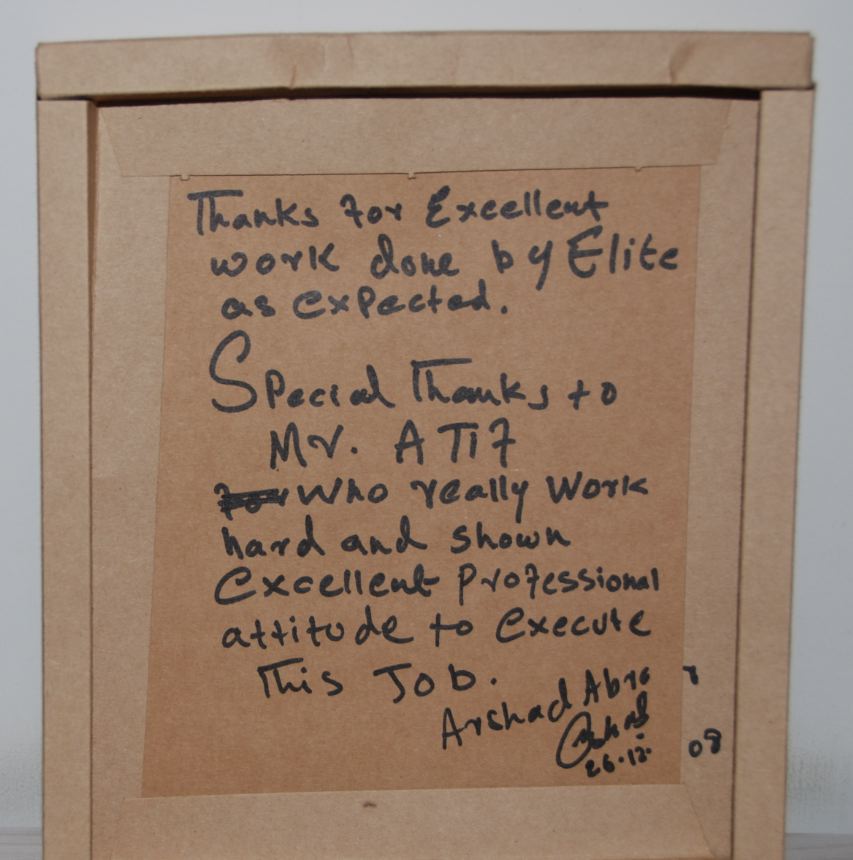 Thanks for Excellent
work done by Elite
as expected.
Special Thanks to
Mr. ATIF
who really work
hard and shown
Excellent Professional
attitude to execute
This Job.
Arshad Abro
26.12. 08